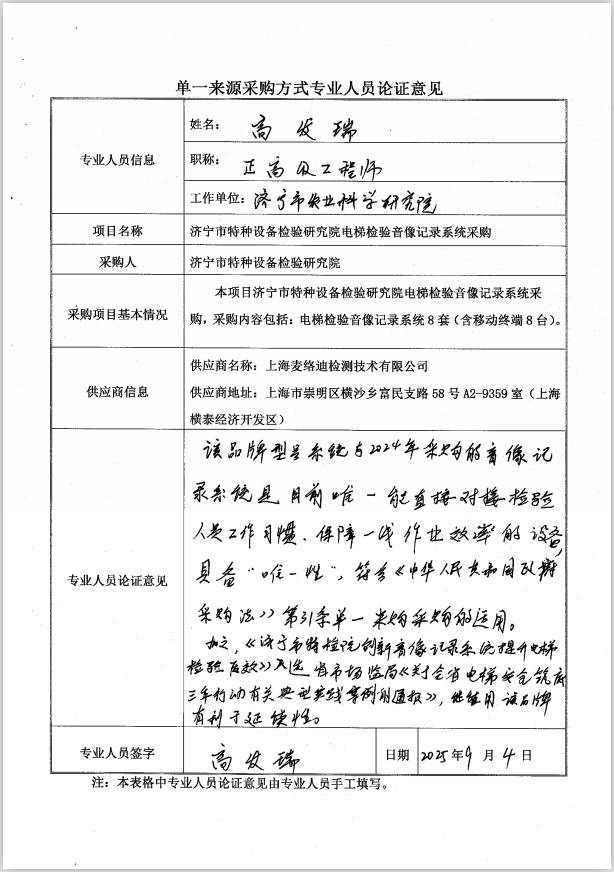 单一来源采购方式专业人员论证意见
专业人员信息
姓名： 高发瑞
职称： 正高级工程师
工作单位：济宁市农业科学研究院
项目名称
济宁市特种设备检验研究院电梯检验音像记录系统采购
采购人
济宁市特种设备检验研究院
采购项目基本情况
本项目济宁市特种设备检验研究院电梯检验音像记录系统采
购，采购内容包括：电梯检验音像记录系统8套（含移动终端8台）。
供应商信息
供应商名称：上海麦络迪检测技术有限公司
供应商地址：上海市崇明区横沙乡富民支路58号A2-9359室（上海
横泰经济开发区）
专业人员论证意见
该品牌型号系统与2024年采购的音像记
录系统是目前唯一能直接对接检验
人员工作习惯、保障一线作业效率的设备，
具备“唯一性”，符合《中华人民共和国政府
采购法》第31条单一来购采购的运用。
加之，《济宁市特检院创新音像记录系统提升电梯
检验质效》入选省市场监局《关于全省电梯安全筑底
三年行动有关典型实践案例的通报》，继续用该品牌
有利于延续性。
专业人员签字
高发瑞
日期
2025年9月4日
注：本表格中专业人员论证意见由专业人员手工填写。